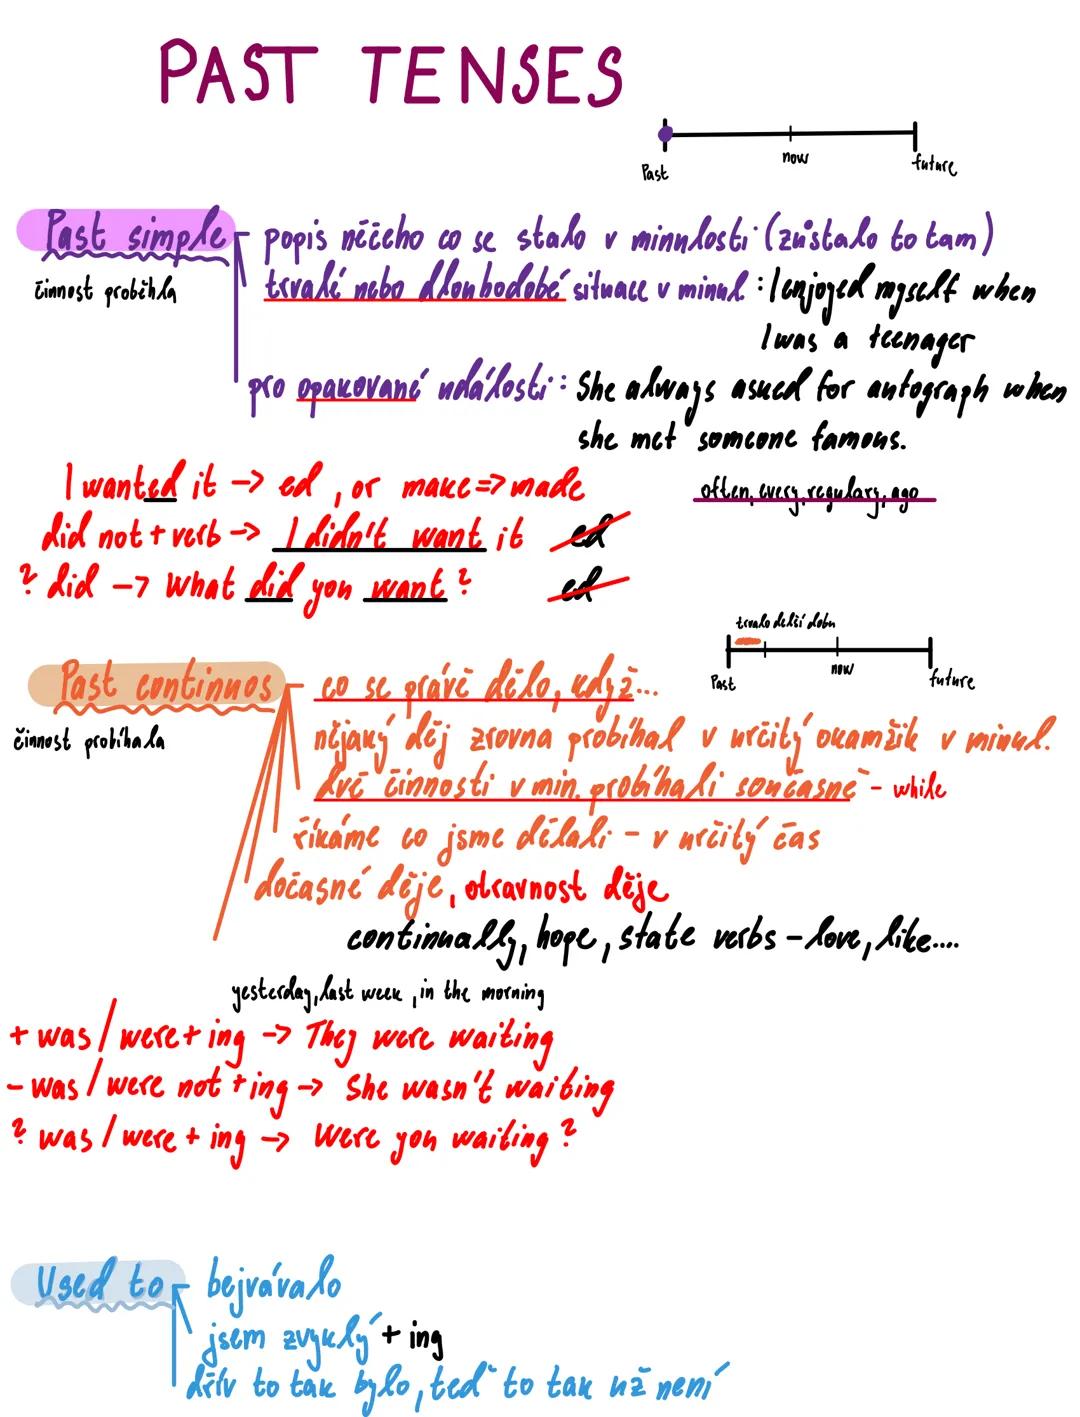 PAST TENSES
Past
now
future
Past simple
popis něčeho co se stalo v minulosti (zůstalo to tam)
činnost proběhla
trvalé nebo dlouhodobé situace v minul : I enjoyed myself when
I was a teenager
pro opakované události : She always asked for autograph when
she met someone famous.
I wanted it -> ed, or make => made
often, every, regulary, ago
did not + verb -> I didn't want it ed
? did -> What did you want? ed
trvalo delší dobu
Past
now
future
Past continuos
co se právě dělo, když...
činnost probíhala
nějaký děj zrovna probíhal v určitý okamžik v minul.
dvě činnosti v min. probíhali současně - while
říkáme co jsme dělali - v určitý čas
dočasné děje, otravnost děje
continually, hope, state verbs - love, like....
yesterday, last week, in the morning
+ was / were + ing -> They were waiting
- was / were not + ing -> She wasn't waiting
? was / were + ing -> Were you waiting?
Used to
bejvávalo
jsem zvyklý + ing
dřív to tak bylo, teď to tak už není